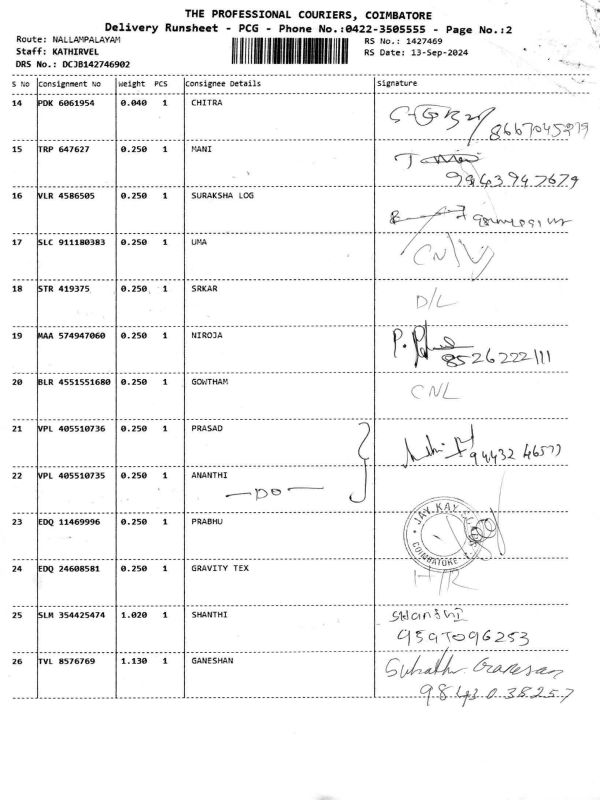 THE PROFESSIONAL COURIERS, COIMBATORE
Delivery Runsheet - PCG - Phone No.:0422-3505555 - Page No.:2
Route: NALLAMPALAYAM
RS No.: 1427469
Staff: KATHIRVEL
RS Date: 13-Sep-2024
DRS No.: DCJB142746902
S No Consignment No Weight PCS Consignee Details Signature
14 PDK 6061954 0.040 1 CHITRA
15 TRP 647627 0.250 1 MANI
16 VLR 4586505 0.250 1 SURAKSHA LOG
17 SLC 911180383 0.250 1 UMA
18 STR 419375 0.250 1 SRKAR D/L
19 MAA 574947060 0.250 1 NIROJA
8526222111
20 BLR 4551551680 0.250 1 GOWTHAM CNL
21 VPL 405510736 0.250 1 PRASAD
22 VPL 405510735 0.250 1 ANANTHI
—DO—
23 EDQ 11469996 0.250 1 PRABHU JAY KAY COIMBATORE
24 EDQ 24608581 0.250 1 GRAVITY TEX H/R
25 SLM 354425474 1.020 1 SHANTHI
26 TVL 8576769 1.130 1 GANESHAN
9843038257